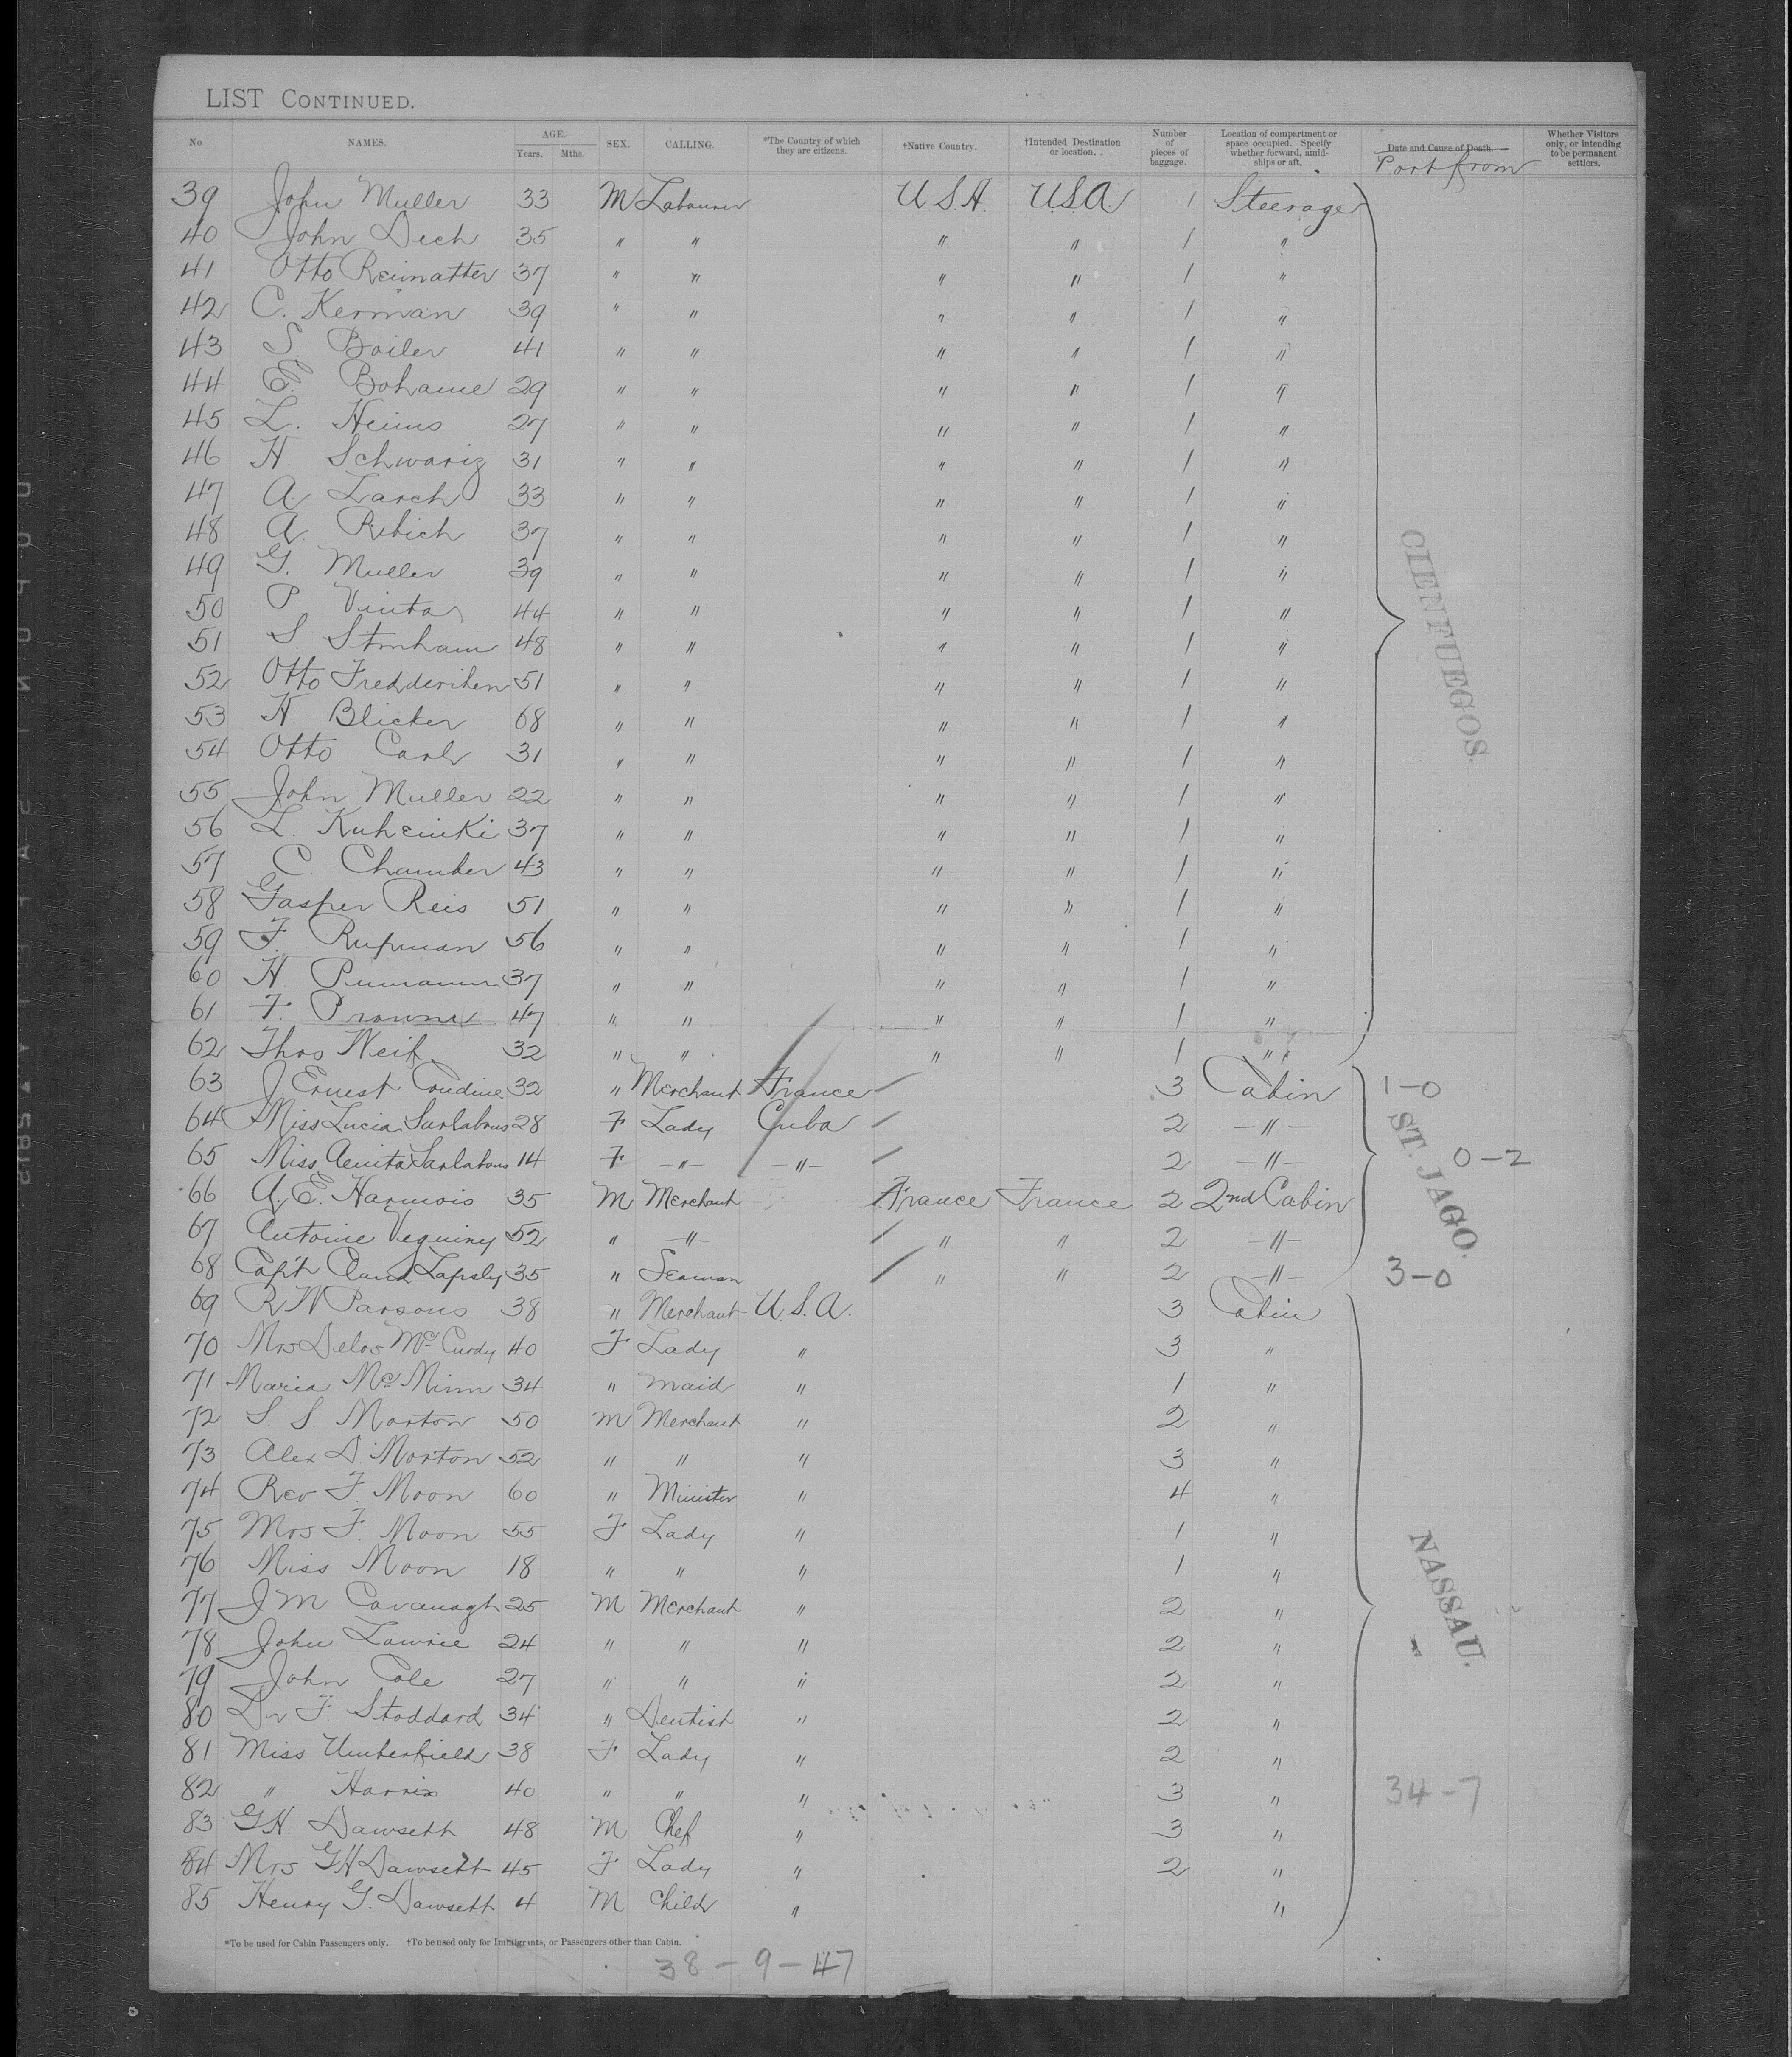 LIST CONTINUED.
No NAMES. AGE. Years. Mths. SEX. CALLING. *The Country of which they are citizens. †Native Country. †Intended Destination or location. Number of pieces of baggage. Location of compartment or space occupied. Specify whether forward, amidships or aft. Date and Cause of Death. Whether Visitors only, or intending to be permanent settlers.
Port from
39 John Muller 33 M Labourer U.S.A. USA 1 Steerage
40 John Dech 35 " " " " 1 "
41 Otto Reimatter 37 " " " " 1 "
42 C. Kerman 39 " " " " 1 "
43 S Boiler 41 " " " " 1 "
44 E. Bohame 29 " " " " 1 "
45 L. Heims 27 " " " " 1 "
46 H. Schwarig 31 " " " " 1 "
47 A. Larch 33 " " " " 1 "
48 A. Rebich 37 " " " " 1 "
49 G. Muller 39 " " " " 1 "
50 P Vinta 44 " " " " 1 "
51 S Stonham 48 " " " " 1 "
52 Otto Fredderiken 51 " " " " 1 "
53 H. Blicker 68 " " " " 1 "
54 Otto Carl 31 " " " " 1 "
55 John Muller 22 " " " " 1 "
56 L. Kuhcinki 37 " " " " 1 "
57 C. Chamber 43 " " " " 1 "
58 Gasper Reis 51 " " " " 1 "
59 F. Rupman 56 " " " " 1 "
60 H. 37 " " " " 1 "
61 F. 47 " " " " 1 "
62 Thos Weik 32 " " " " 1 "
CIENFUEGOS.
63 J Ernest 32 " Merchant France 3 Cabin 1-0
64 Miss Lucia Sarlabous 28 F Lady Cuba 2 -"-
65 Miss Sarlabous 14 F -"- -"- 2 -"- 0-2
66 A. E. Harmois 35 M Merchant France France 2 2nd Cabin
67 Antoine 52 " -"- " " 2 -"-
68 Capt Lapsly 35 " Seaman " " 2 -"- 3-0
ST. JAGO.
69 R W Parsons 38 " Merchant U.S.A. 3 Cabin
70 Mrs Delos McCurdy 40 F Lady " 3 "
71 Maria McMinn 34 " maid " 1 "
72 S. S. Morton 50 M Merchant " 2 "
73 Alex D. Morton 52 " " " 3 "
74 Rev F. Moon 60 " Minister " 4 "
75 Mrs F. Moon 55 F Lady " 1 "
76 Miss Moon 18 " " " 1 "
77 J M Cavanagh 25 M Merchant " 2 "
78 John Lawrie 24 " " " 2 "
79 John Cole 27 " " " 2 "
NASSAU.
80 Dr F. Stoddard 34 " Dentist " 2 "
81 Miss Umberfield 38 F Lady " 2 "
82 " Harris 40 " " " 3 " 34-7
83 G H. Dawsett 48 M Chef " 3 "
84 Mrs G H Dawsett 45 F Lady " 2 "
85 Henry G. Dawsett 4 M Child " "
*To be used for Cabin Passengers only. †To be used only for Immigrants, or Passengers other than Cabin.
38-9-47